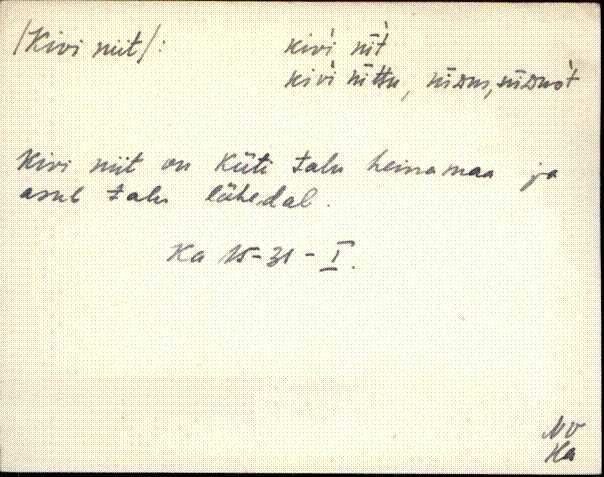 /Kivi niit/: kivi nīt
kivi nīttu, nīDus, nīDust
Kivi niit on Küti talu heinamaa ja
asub talu lähedal.
Ka 15-31-I.
NV
Ha